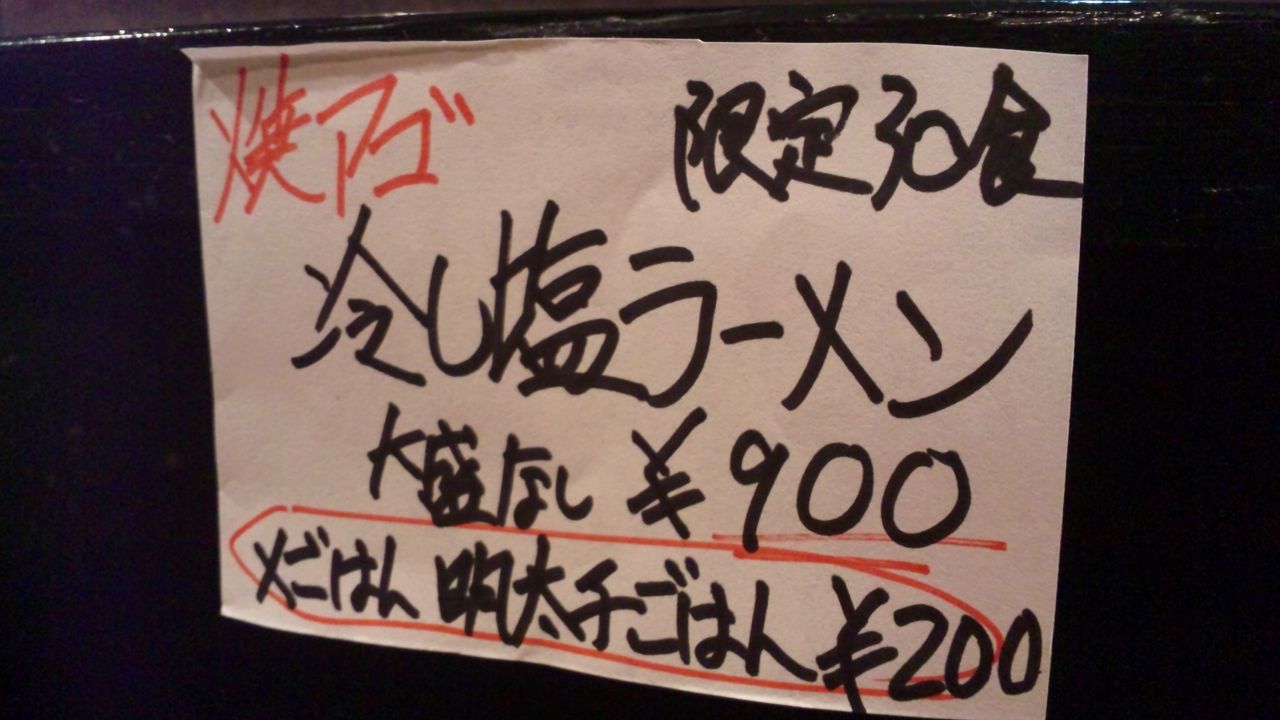 焼アゴ
限定30食
冷し塩ラーメン
大盛なし ¥900
〆ごはん 明太子ごはん ¥200